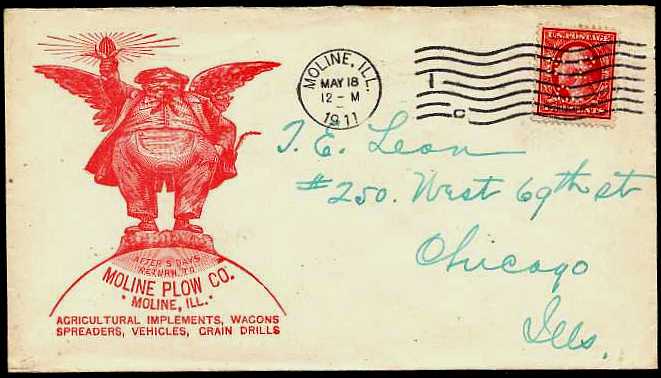 AFTER 5 DAYS
RETURN TO
MOLINE PLOW CO.
• MOLINE, ILL. •
AGRICULTURAL IMPLEMENTS, WAGONS
SPREADERS, VEHICLES, GRAIN DRILLS
MOLINE, ILL.
MAY 18
12 - M
1911
1
C
T. E. Leon
#250. West 69th st
Chicago
Ills.